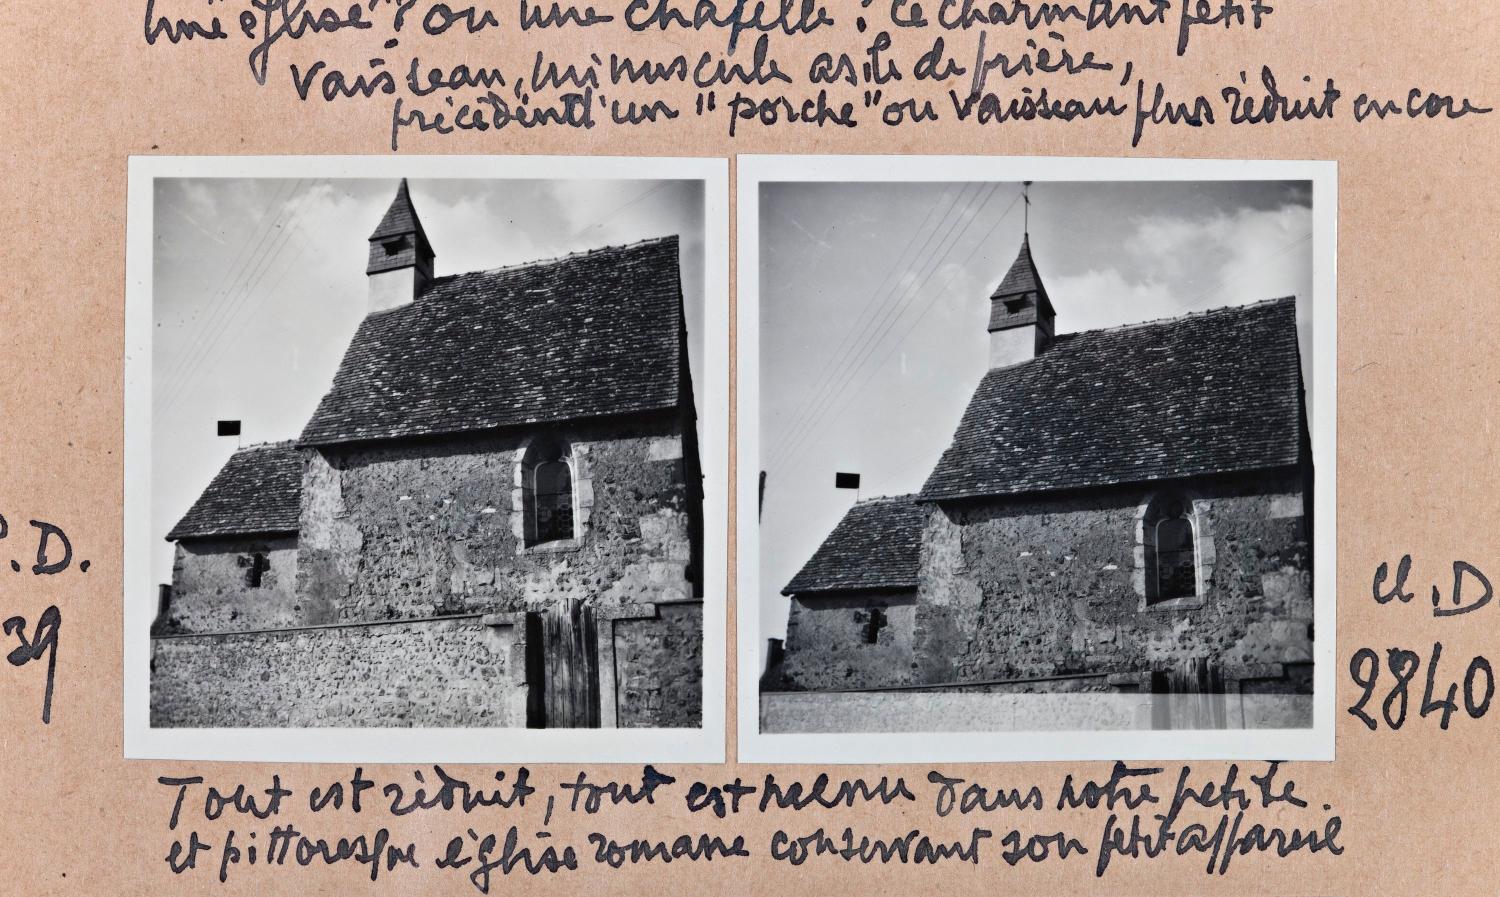 Une église ? ou une chapelle ? Ce charmant petit
vaisseau, minuscule asile de prière,
précédé d'un "porche" ou vaisseau plus réduit encore
P.D.
39
cl.D
2840
Tout est réduit, tout est menu dans notre petite.
et pittoresque église romane conservant son petit appareil